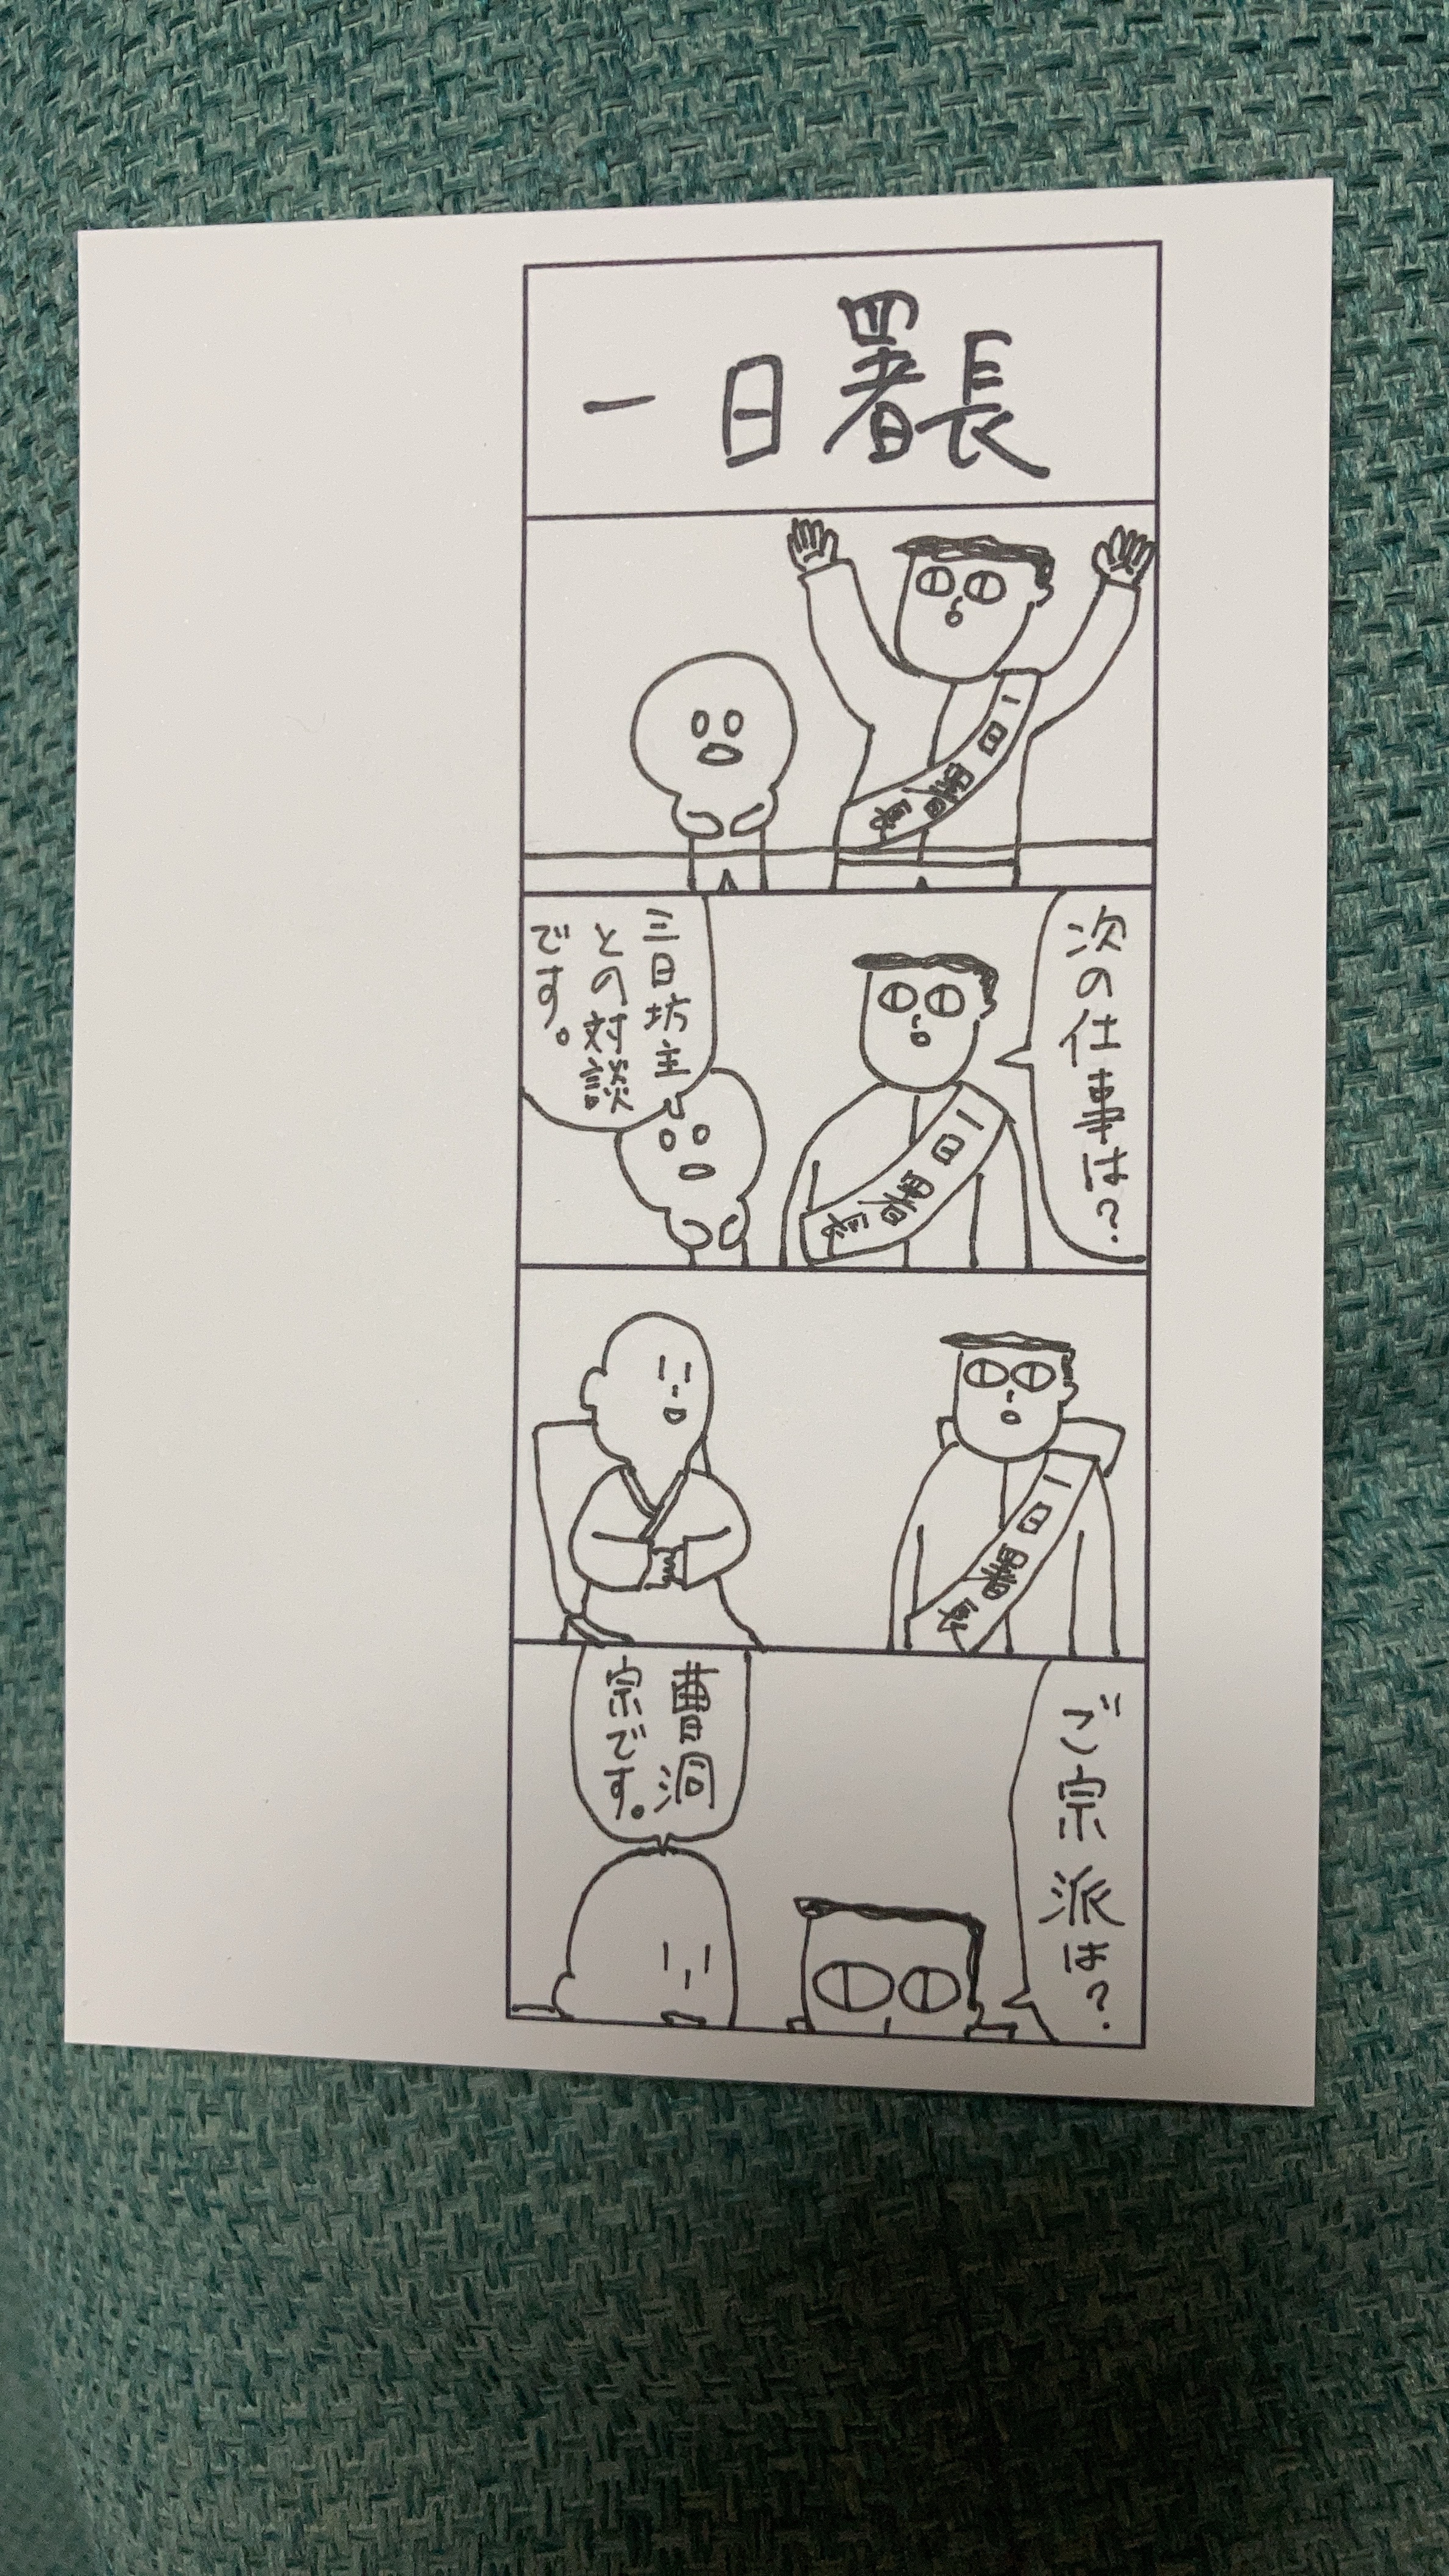 一日署長
一日署長
次の仕事は?
三日坊主
との対談
です。
一日署長
一日署長
ご宗派は?
曹洞
宗です。